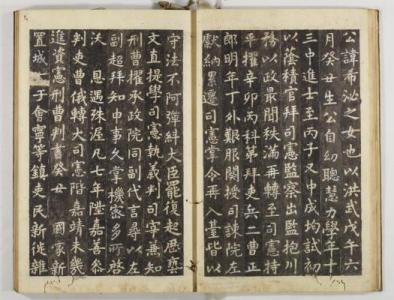 公諱希泌之女也以洪武戊午六
月癸丑生公自幼聰慧力學年十
三中進士至丙子又中成均試初
以蔭積官拜司憲監察出監抱川
務以政最聞秩滿再轉至司憲持
平擢辛卯丙科第拜吏兵二曹正
郎明年丁外艱服闋授司諫院左
獻納累遷司憲掌令再入臺皆以
守法不阿彈糾大臣罷復起歷藝
文直提學司憲執義判司宰兼知
刑曹擢承政院同副代言尋以左
副超拜知申事久掌機密多所啓
沃恩遇殊渥凡七年陞嘉善叅
判吏曹俄轉大司憲階嘉靖未幾
進資憲刑曹判書癸丑 國家新
置城 于會寧等鎮吏民新徙離